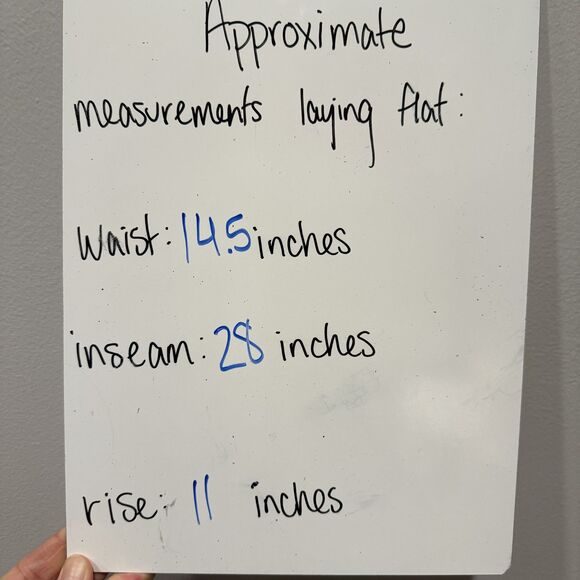 Approximate
measurements laying flat:
Waist: 14.5 inches
inseam: 28 inches
rise: 11 inches